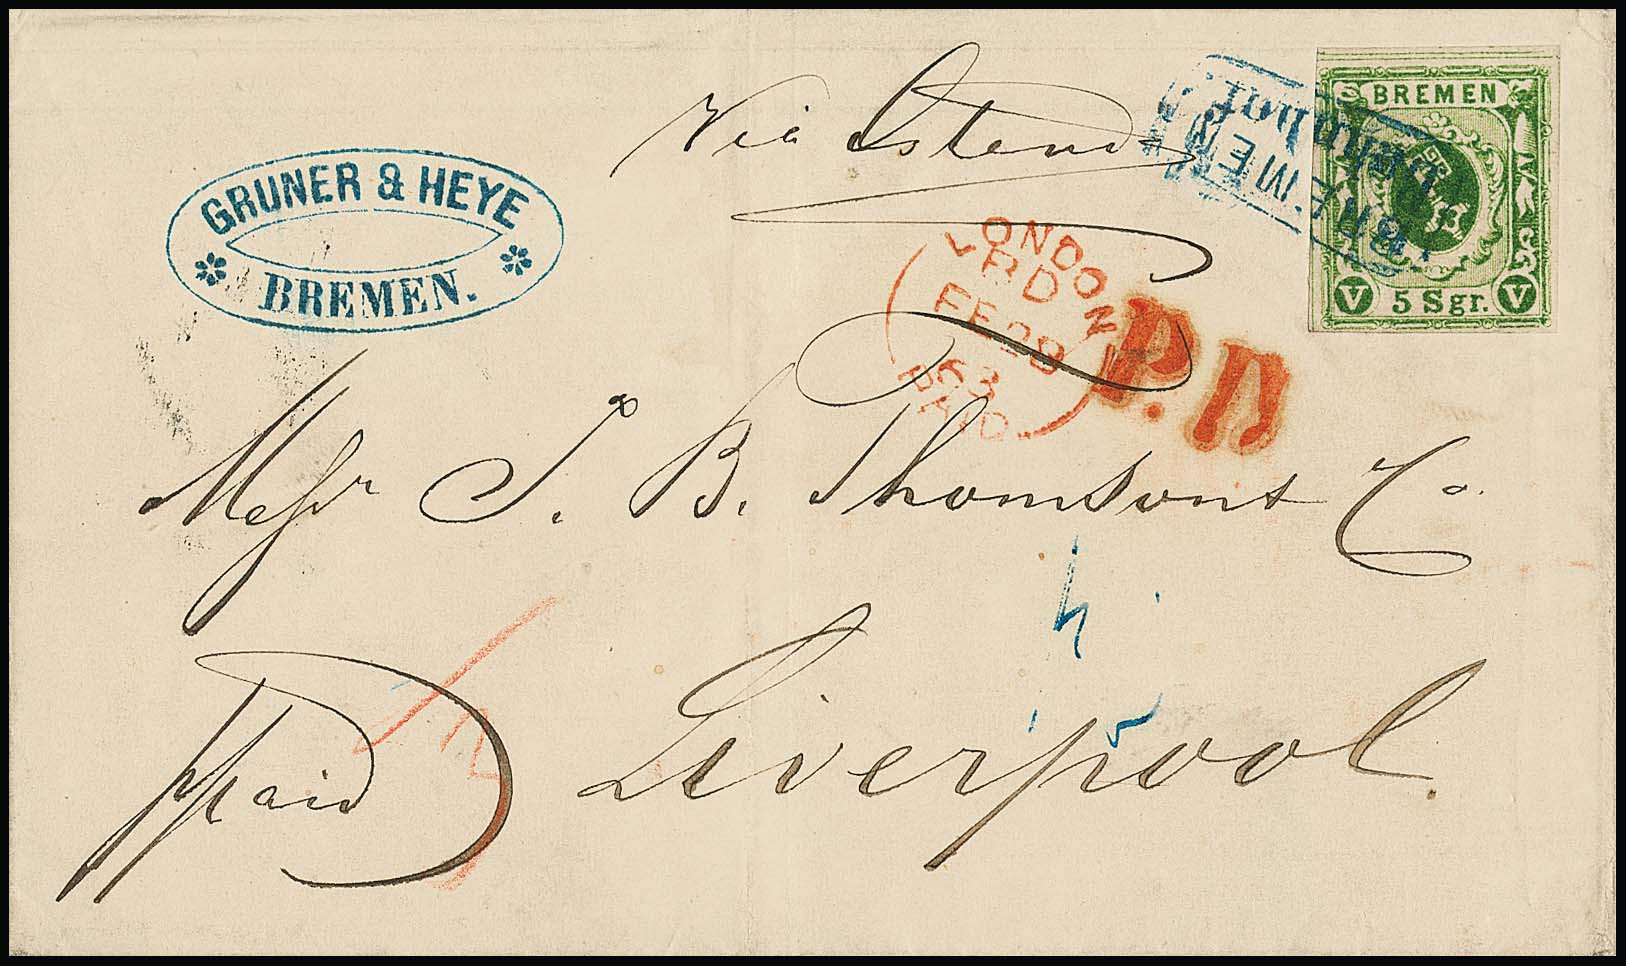 Via Ostende
BREMEN
Bahnhof
BREMEN
5 Sgr.
V V
GRUNER & HEYE
BREMEN.
LONDON
RD
FE 28
63
PAID
P.D
Messr J. B. Thomson & Co.
Liverpool.
ppaid